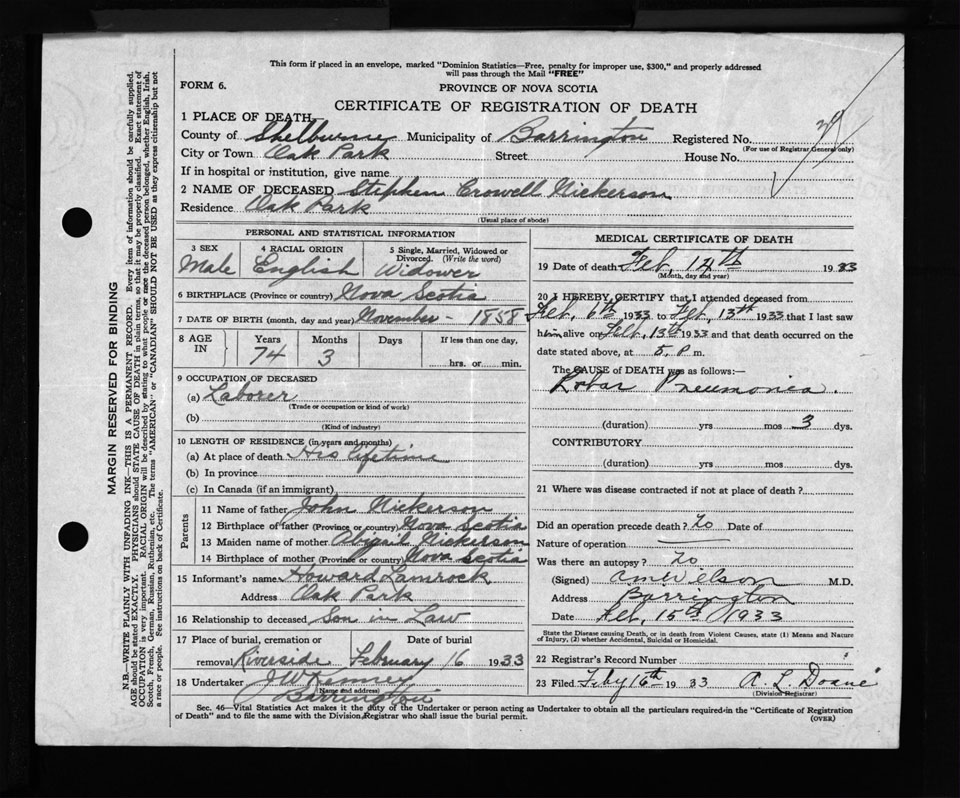 This form if placed in an envelope, marked "Dominion Statistics—Free, penalty for improper use, $300," and properly addressed
will pass through the Mail "FREE"
FORM 6.
PROVINCE OF NOVA SCOTIA
CERTIFICATE OF REGISTRATION OF DEATH
1 PLACE OF DEATH
County of Shelburne Municipality of Barrington Registered No.
(For use of Registrar General only)
City or Town Oak Park Street House No.
If in hospital or institution, give name
2 NAME OF DECEASED Stephen Crowell Nickerson
Residence Oak Park
(Usual place of abode)
PERSONAL AND STATISTICAL INFORMATION
3 SEX 4 RACIAL ORIGIN 5 Single, Married, Widowed or
Divorced. (Write the word)
Male English Widower
6 BIRTHPLACE (Province or country) Nova Scotia
7 DATE OF BIRTH (month, day and year) November - 1858
8 AGE IN Years Months Days If less than one day,
74 3 hrs. or min.
9 OCCUPATION OF DECEASED
(a) Laborer
(Trade or occupation or kind of work)
(b)
(Kind of industry)
10 LENGTH OF RESIDENCE (in years and months)
(a) At place of death His lifetime
(b) In province
(c) In Canada (if an immigrant)
Parents
11 Name of father John Nickerson
12 Birthplace of father (Province or country) Nova Scotia
13 Maiden name of mother Abigail Nickerson
14 Birthplace of mother (Province or country) Nova Scotia
15 Informant's name Howard Lamrock
Address Oak Park
16 Relationship to deceased Son in Law
17 Place of burial, cremation or Date of burial
removal Riverside February 16 1933
18 Undertaker J W Kenney
(Name and address)
Barrington
MEDICAL CERTIFICATE OF DEATH
19 Date of death Feb. 14th 1933
(Month, day and year)
20 I HEREBY CERTIFY that I attended deceased from
Feb. 6th 1933 to Feb. 13th 1933 that I last saw
him alive on Feb. 13th 1933 and that death occurred on the
date stated above, at 5. P. m.
The CAUSE OF DEATH was as follows:—
Lobar Pneumonia.
(duration) yrs mos 3 dys.
CONTRIBUTORY
(duration) yrs. mos. dys.
21 Where was disease contracted if not at place of death?
Did an operation precede death? No Date of
Nature of operation
Was there an autopsy? No
(Signed) M.D.
Address Barrington
Date Feb. 15th 1933
State the Disease causing Death, or in death from Violent Causes, state (1) Means and Nature
of Injury, (2) whether Accidental, Suicidal or Homicidal.
22 Registrar's Record Number
23 Filed Feby 16th 1933 A. L. Doane
(Division Registrar)
Sec. 46—Vital Statistics Act makes it the duty of the Undertaker or person acting as Undertaker to obtain all the particulars required in the "Certificate of Registration
of Death" and to file the same with the Division Registrar who shall issue the burial permit. (OVER)
MARGIN RESERVED FOR BINDING
N.B.—WRITE PLAINLY WITH UNFADING INK—THIS IS A PERMANENT RECORD. Every item of information should be carefully supplied.
AGE should be stated EXACTLY. PHYSICIANS should STATE CAUSE OF DEATH in plain terms, so that it may be properly classified. Exact statement of
OCCUPATION is very important. RACIAL ORIGIN will be described by stating to what people or race the deceased person belonged, whether English, Irish,
Scotch, French, German, Russian, Ruthenian, etc. The terms "AMERICAN" or "CANADIAN" SHOULD NOT BE USED as they express citizenship but not
a race or people. See instructions on back of Certificate.